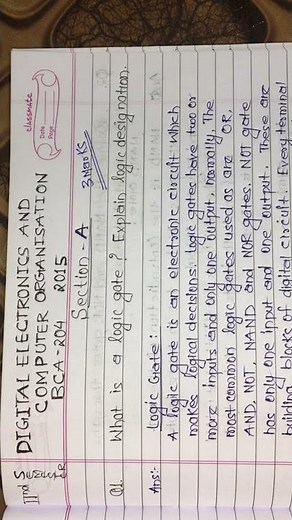 classmate
Date
Page
IInd Semester
DIGITAL ELECTRONICS AND
COMPUTER ORGANISATION
BCA-204 2015
Section-A 3 Marks
Q1. What is a logic gate? Explain logic designation.
Ans:- Logic Gate:
A logic gate is an electronic circuit which
makes logical decisions. Logic gates have two or
more inputs and only one output normally. The
most common logic gates used as are OR,
AND, NOT, NAND and NOR gates. NOT gate
has only one input and one output. These are
building blocks of digital circuit. Every terminal